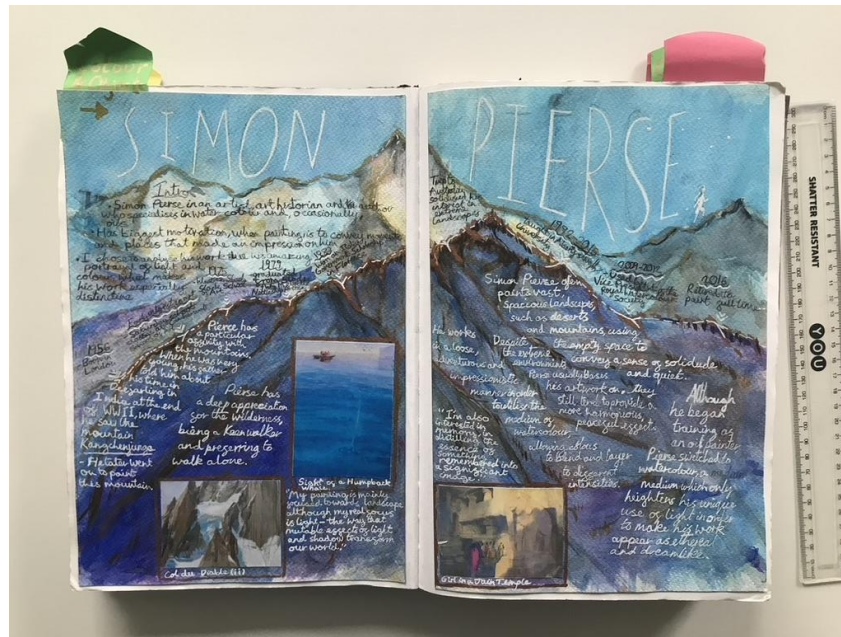 SIMON PIERSE
Intro
• Simon Pierse in an artist, art historian and author
who specialises in water colour and, occasionally,
oils.
• His biggest motivation, when painting is to convey
and places that made an impression on him
• I chose to analyse his work due his amazing
portrayal of light and
colour, what makes
his work especially
distinctive
1956
London
1979
graduated
Pierse has
a particular
affinity with
the mountains.
When he was very
young, his father
told him about
his time in
Darjeeling in
India at the end
of WWII, where
he saw the
mountain
Kangchenjunga
. He later went
on to paint
this mountain.
Pierse has
a deep appreciation
for the wilderness,
being a keen walker
and preferring to
walk alone.
Sight of a Humpback
whale
"My painting is mainly
focused towards landscape
although my real focus
is light - the way that
mutable effects of light
and shadow transform
our world."
Col des Drable (ii)
Trip to
Australia
solidified his
interest in
extreme
landscapes
University
2009-2012
Vice
society
2016
Simon Pierse often
paints vast,
spacious landscapes,
such as deserts
and mountains, using
the empty space to
convey a sense of solidude
and quiet.
He works
in a loose,
adventurous and
impressionistic
manner in order
to utilise the
medium of
watercolour,
allowing colours
to blend and layer
to different
intensities.
Despite
the extreme
environments
Pierse usually bases
his artwork on, they
still tend to provide a
more harmonious,
peaceful effect.
"I'm also
interested in
memory and
distilling the
essence of
something
remembered into
a significant
image"
Although
he began
training as
an oil painter
Pierse switched to
watercolour, a
medium which only
heightens his unique
use of light in order
to make his work
appear as ethereal
and dreamlike.
Girl in a Jain Temple
SHATTER RESISTANT
YOU